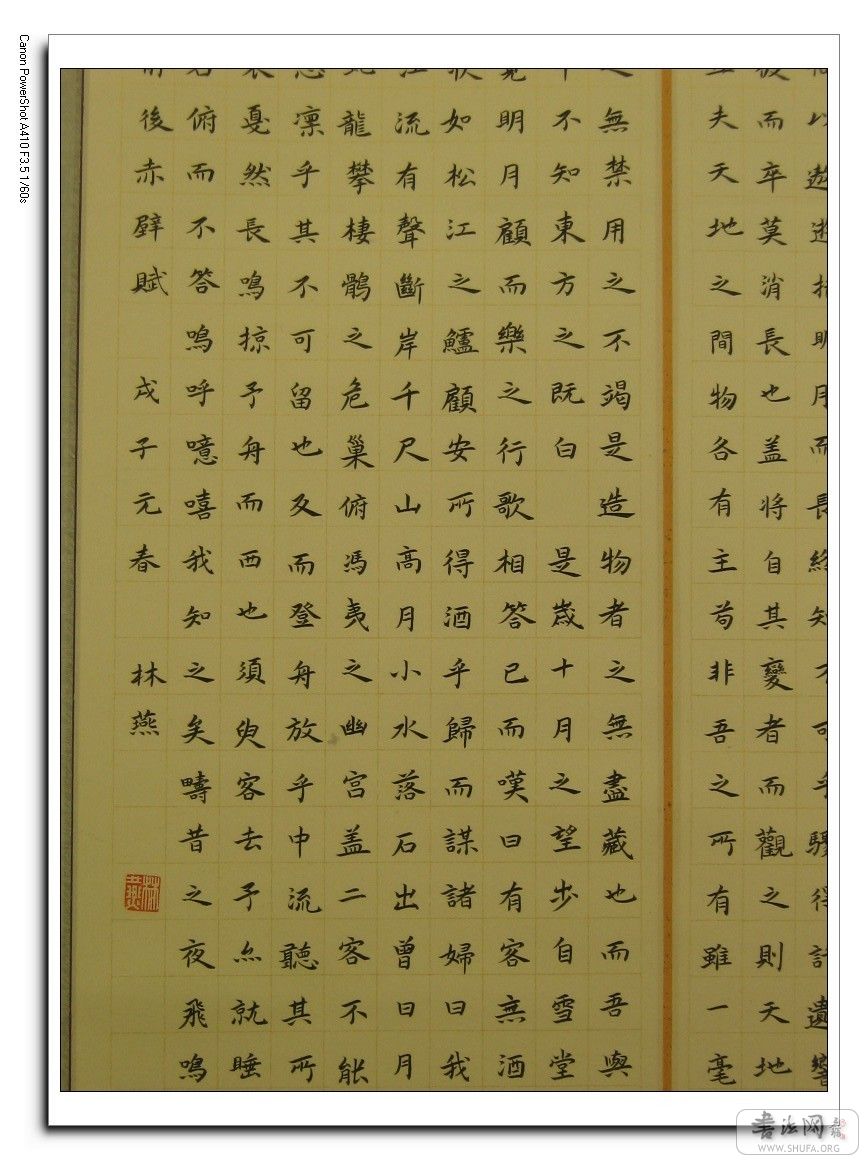 以遨遊
明月而長終知
可乎驟得
遺響
而卒莫消長也盖將自其變者而觀之則天地
夫天地之間物各有主苟非吾之所有雖一毫
無禁用之不竭是造物者之無盡藏也而吾與
不知東方之既白 是歲十月之望步自雪堂
明月顧而樂之行歌相答已而嘆曰有客無酒
如松江之鱸顧安所得酒乎歸而謀諸婦曰我
流有聲斷岸千尺山高月小水落石出曾日月
龍攀棲鶻之危巢俯馮夷之幽宮盖二客不能
凜乎其不可留也反而登舟放乎中流聽其所
戛然長鳴掠予舟而西也須臾客去予亦就睡
俯而不答鳴呼噫嘻我知之矣疇昔之夜飛鳴
後赤壁賦 戌子元春 林燕
書法网
WWW.SHUFA.ORG
Canon PowerShot A410 F3.5 1/60s